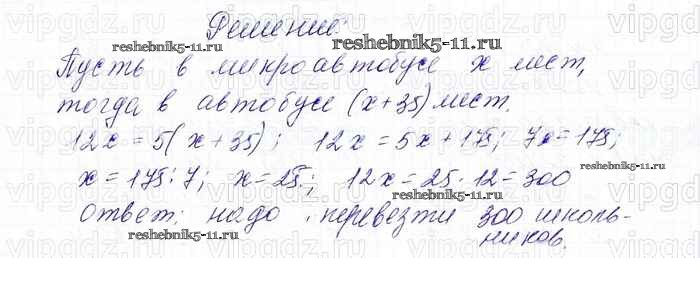 Решение:
Пусть в микроавтобусе x мест,
тогда в автобусе (x+35) мест.
12x = 5(x+35); 12x = 5x+175; 7x=175;
x=175:7; x=25; 12x=25·12=300
ответ: надо перевезти 300 школь-
ников.
reshebnik5-11.ru
reshebnik5-11.ru
reshebnik5-11.ru
reshebnik5-11.ru
reshebnik5-11.ru
vipgdz.ru